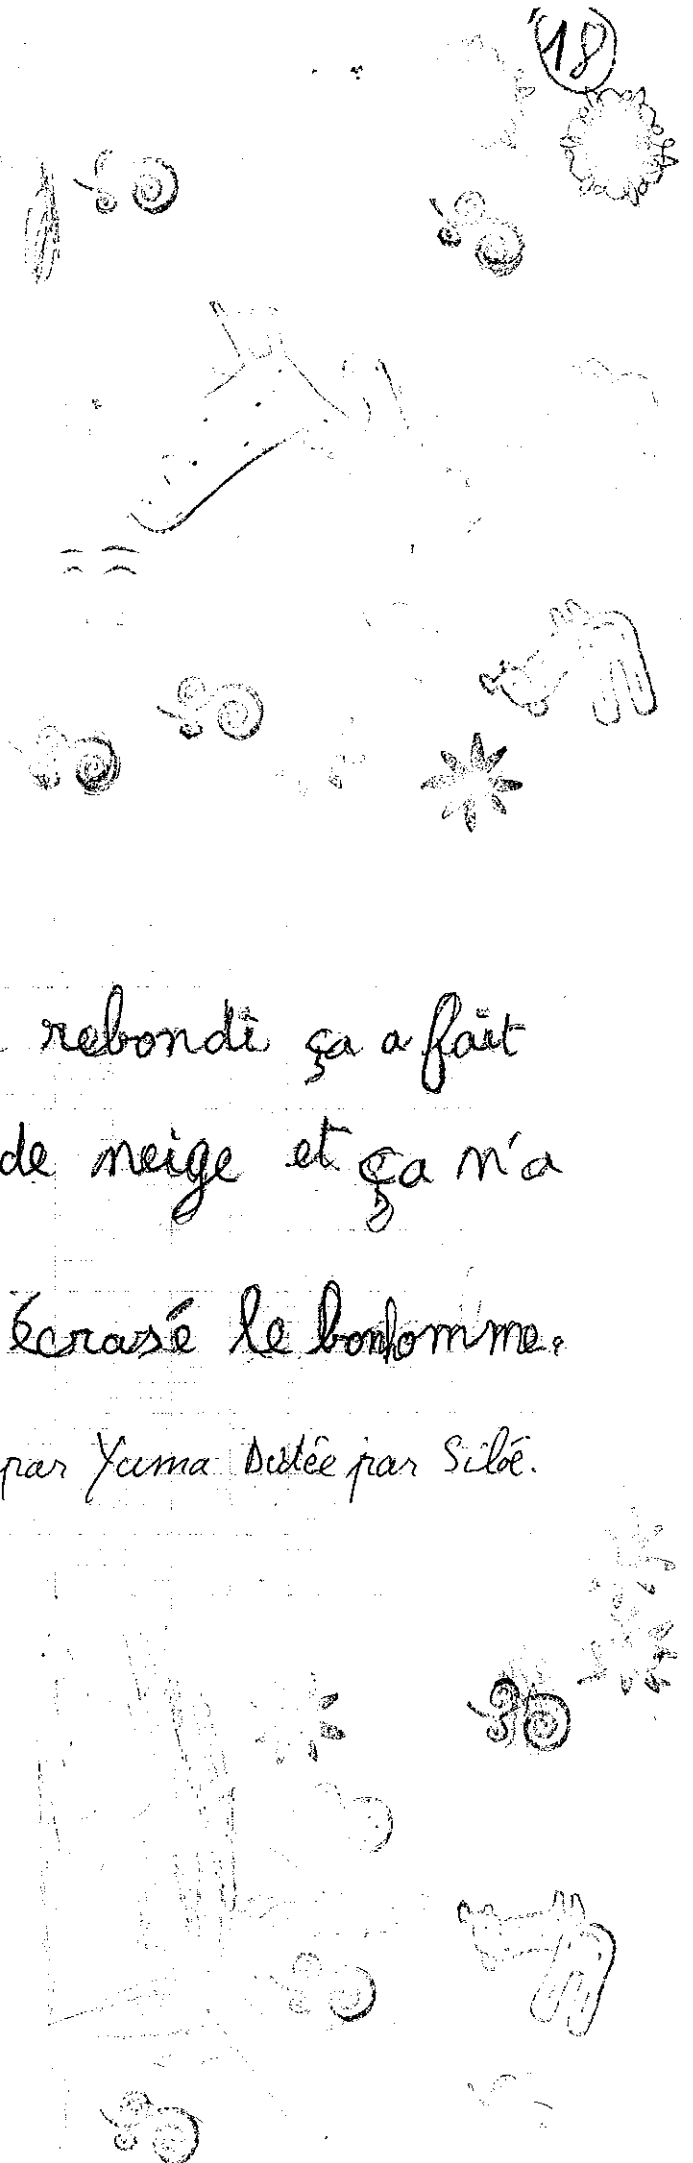 18
rebondi ça a fait
de neige et ça n'a
écrasé le bonhomme.
par Yuma Dictée par Siloé.